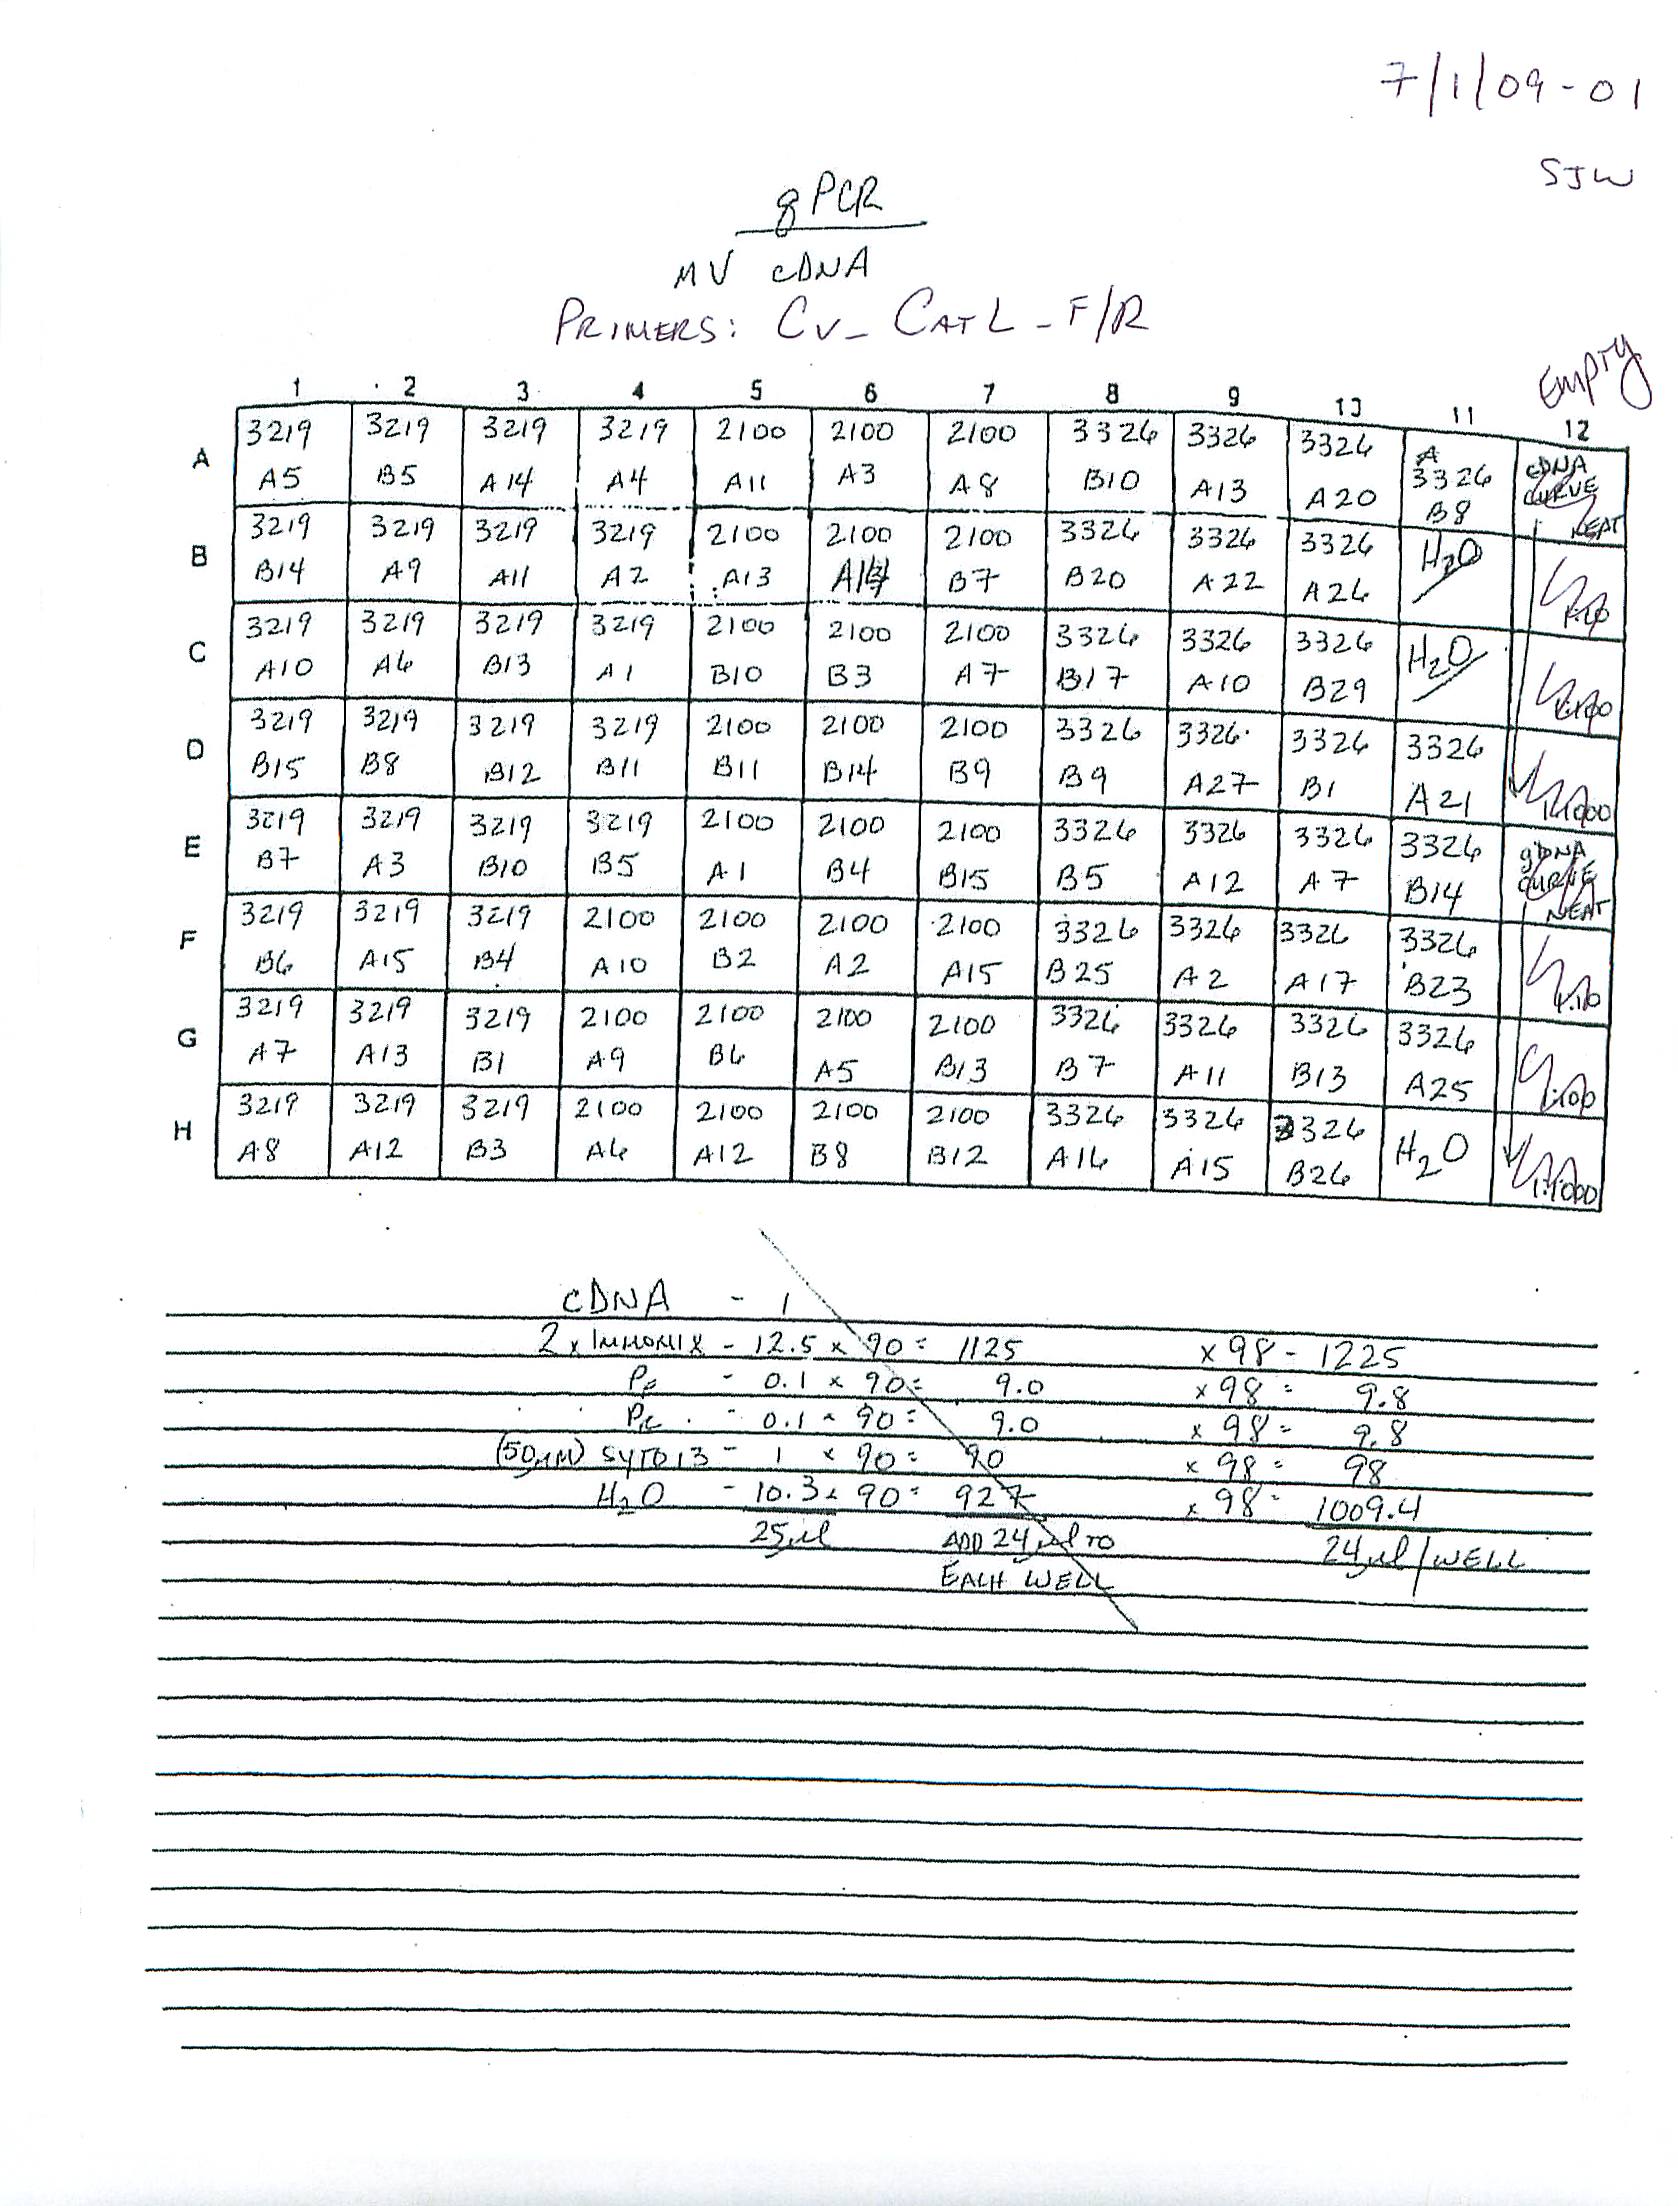 7/1/09-01
SJW
qPCR
MV cDNA
PRIMERS: CV_CATL_F/R
Empty
1 2 3 4 5 6 7 8 9 10 11 12
A 3219 3219 3219 3219 2100 2100 2100 3326 3326 3326 A 3326 cDNA CURVE
A5 B5 A14 A4 A11 A3 A8 B10 A13 A20 B8 NEAT
B 3219 3219 3219 3219 2100 2100 2100 3326 3326 3326 H2O
B14 A9 A11 A2 A13 B7 B20 A22 A26 1:10
C 3219 3219 3219 3219 2100 2100 2100 3326 3326 3326 H2O
A10 A6 B13 A1 B10 B3 A7 B17 A10 B29 1:100
D 3219 3219 3219 3219 2100 2100 2100 3326 3326 3326 3326
B15 B8 B12 B11 B11 B14 B9 B9 A27 B1 A21 1:1000
E 3219 3219 3219 3219 2100 2100 2100 3326 3326 3326 3326 gDNA CURVE
B7 A3 B10 B5 A1 B4 B15 B5 A12 A7 B14 NEAT
F 3219 3219 3219 2100 2100 2100 2100 3326 3326 3326 3326
B6 A15 B4 A10 B2 A2 A15 B25 A2 A17 B23 1:10
G 3219 3219 3219 2100 2100 2100 2100 3326 3326 3326 3326
A7 A13 B1 A9 B6 A5 B13 B7 A11 B13 A25 1:100
H 3219 3219 3219 2100 2100 2100 2100 3326 3326 3326 H2O
A8 A12 B3 A6 A12 B8 B12 A16 A15 B26 1:1000
cDNA - 1
2x IMMOMIX - 12.5 x 90 = 1125 x 98 - 1225
PF - 0.1 x 90 = 9.0 x 98 = 9.8
PR - 0.1 x 90 = 9.0 x 98 = 9.8
(50µM) SYTO13 - 1 x 90 = 90 x 98 = 98
H2O - 10.3 x 90 = 927 x 98 = 1009.4
25µl ADD 24µl TO 24µl/WELL
EACH WELL